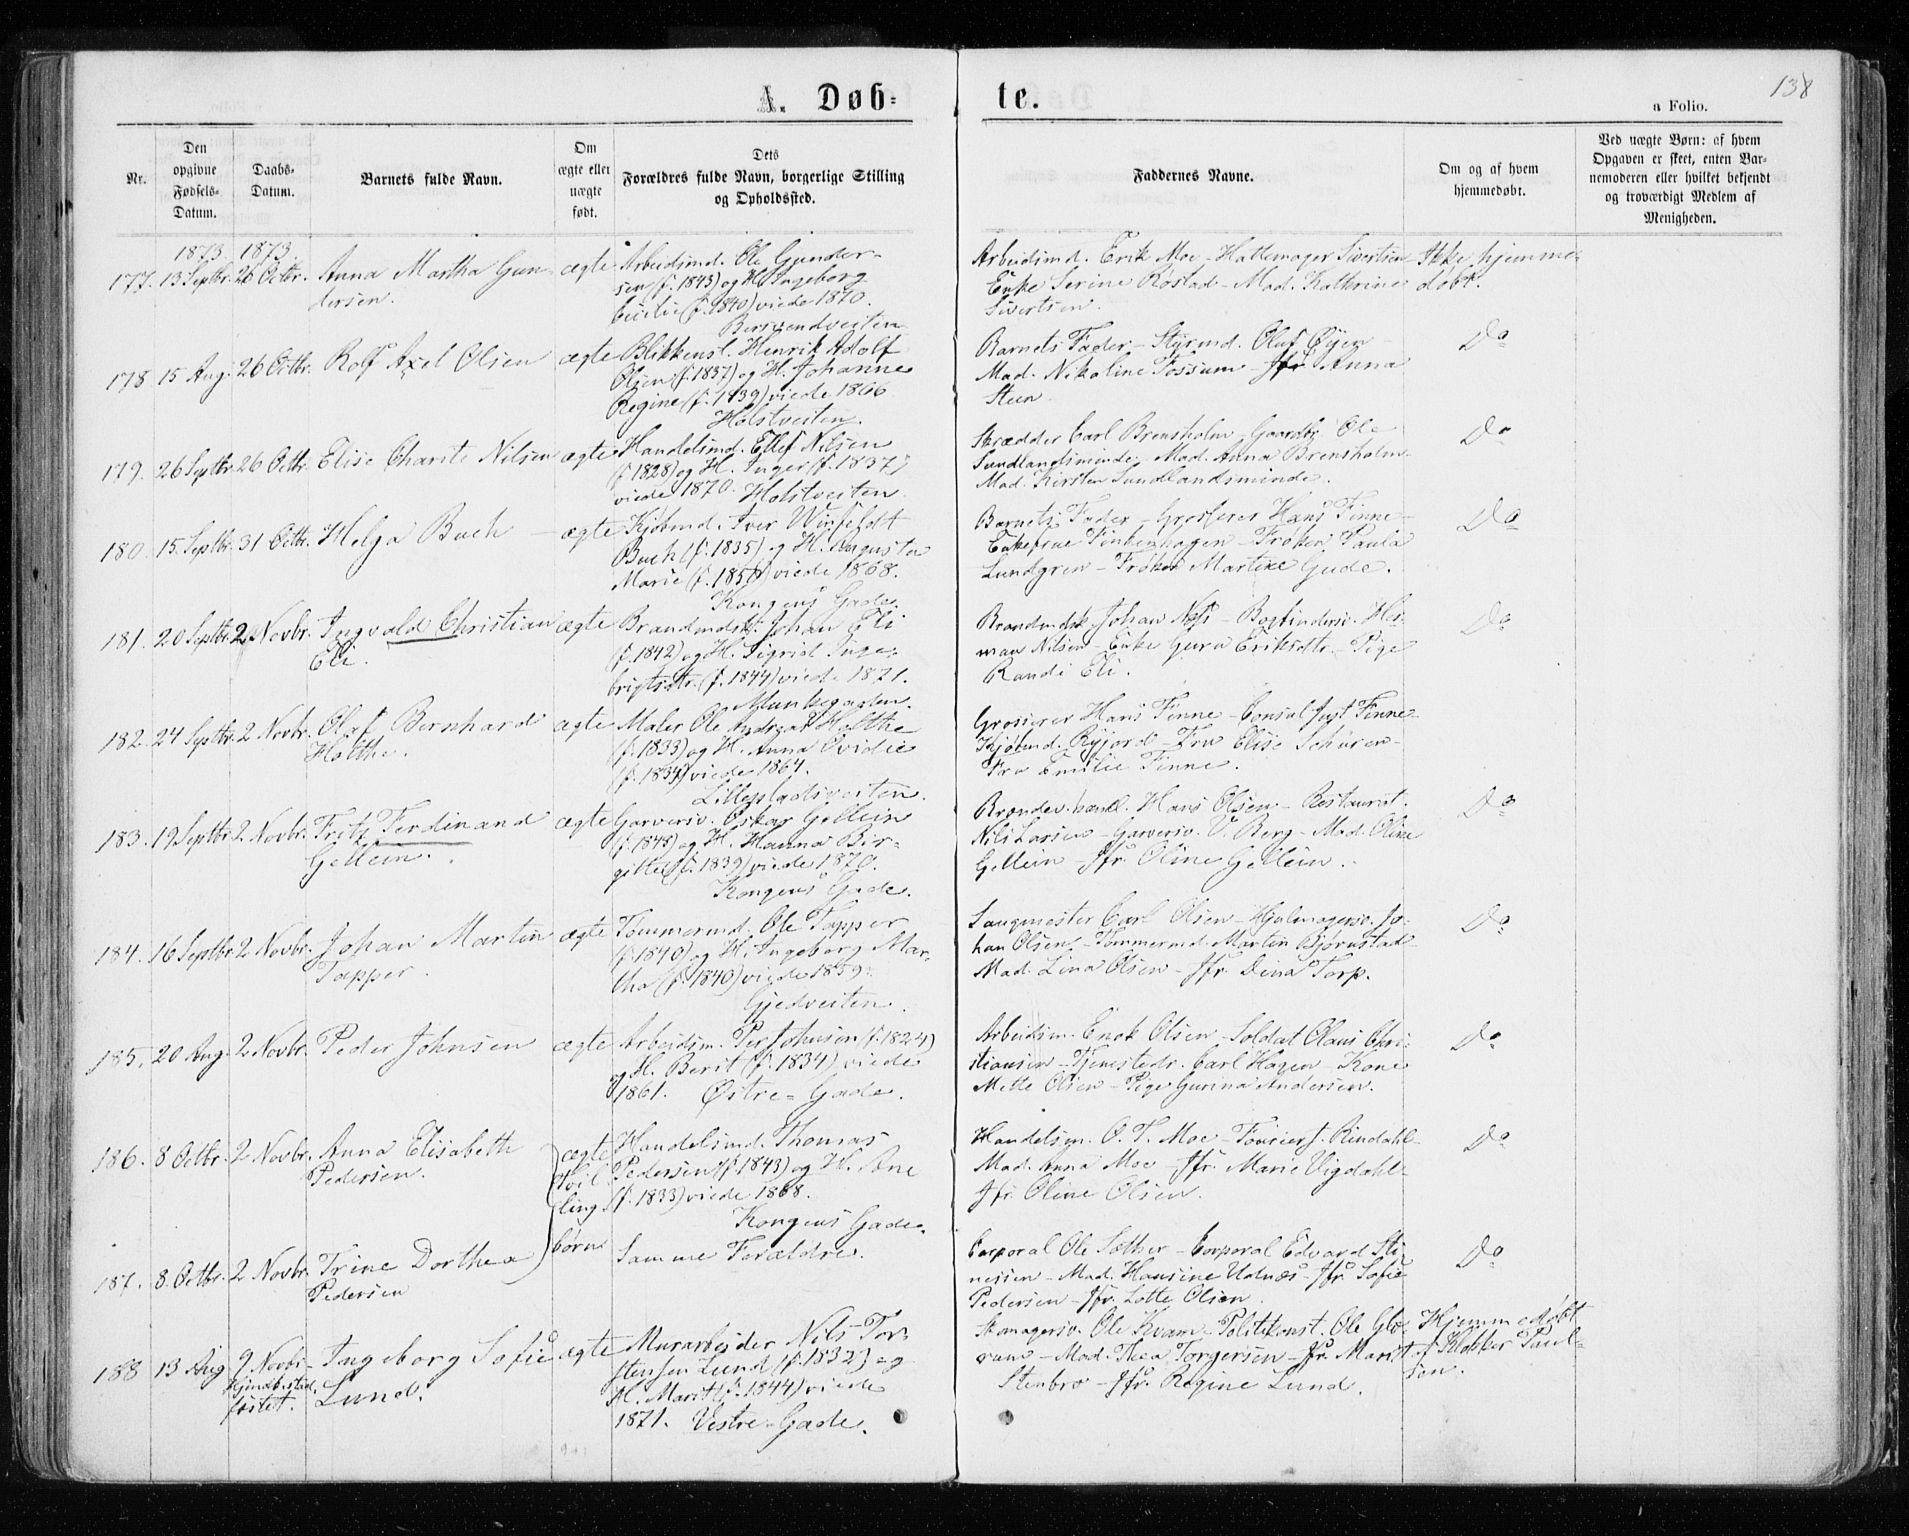 A. Døb-
te.
138
a Folio.
Nr.
Den
opgivne
Fødsels-
Datum.
Daabs-
Datum.
Barnets fulde Navn.
Om
ægte eller
uægte
født.
Dets
Forældres fulde Navn, borgerlige Stilling
og Opholdssted.
Faddernes Navne.
Om og af hvem
hjemmedøbt.
Ved uægte Børn: af hvem
Opgaven er skeet, enten Bar-
nemoderen eller hvilket bekjendt
og troværdigt Medlem af
Menigheden.
1873 1873
177. 13 Septbr. 26 Octbr. Anna Martha Gun-
dersen.
ægte
Arbeidsmd. Ole Gunder-
sen (f. 1843) og H. Ingeborg
Cecilie (f. 1840) viede 1870.
Bersvendveiten
Arbeidsmd. Erik Moe - Hattemager Sivertsen
Enke Serine Røstad - Mad. Kathrine
Sivertsen.
Ikke hjemme-
døbt.
178 15 Aug. 26 Octbr. Rolf Axel Olsen
ægte
Blikkensl. Henrik Adolf
Olsen (f. 1837) og H. Johanne
Regine (f. 1839) viede 1866
Holstveiten.
Barnets Fader - Styrmd. Oluf Øyen -
Mad. Nikoline Fossum - Jfr. Anna
Steen.
Do
179. 26 Septbr. 26 Octbr. Elise Charite Nilsen
ægte
Handelsmd. Ellef Nilsen
(f. 1828) og H. Inger (f. 1837)
viede 1870. Holstveiten
Skrædder Carl Brensholm - Gaardbr. Ole
Sundlandsminde - Mad. Anna Brensholm -
Mad. Kirsten Sundlandsminde.
Do
180. 15. Septbr. 31 Octbr. Helga Buch -
ægte
Kjøbmd. Iver Winfeldt
Buch (f. 1835) og H. Augusta
Marie (f. ) viede 1868.
Kongens Gade.
Barnets Fader - Grosserer Hans Finne -
Enkefrue Finkenhagen - Frøken Paula
Lundgren - Frøken Martine Gude.
Do
181. 20 Septbr. 2 Novbr. Ingvald Christian
Eli.
ægte
Brandmdsk. Johan Eli
(f. 1842) og H. Sigrid Inge-
brigtsdtr. (f. 1844) viede 1871.
Munkegaden.
Brandmdsk. Johan Næss - Bogbindersv. Her-
man Nilsen - Enke Guru Eriksdtr. - Pige
Randi Eli.
Do
182. 24 Septbr. 2 Novbr. Olaf Bernhard
Holthe.
ægte
Maler Ole Andreas Holthe
(f. 1833) og H. Anna Ovidie
(f. 1834) viede 1864.
Lillegaadsveiten.
Grosserer Hans Finne - Consul Jest Finne -
Kjøbmd. Ryjord - Fru Elise Schüren -
Fru Emilie Finne.
183. 19 Septbr. 2 Novbr. Fritz Ferdinand
Gellein.
ægte
Garversv. Oskar Gellein
(f. 1848) og H. Hanna Bir-
gitte (f. 1839) viede 1870.
Kongens Gade.
Brændev. handl. Hans Olsen - Restaurat.
Nils Larsen - Garversv. V. Berg - Mad. Oline
Gellein - Jfr. Oline Gellein.
Do
184. 16 Septbr. 2 Novbr. Johan Martin
Tapper.
ægte
Tømmermd. Ole Tapper
(f. 1840) og H. Ingeborg Mar-
tha (f. 1840) viede 1859.
Gjedveiten.
Saugmester Carl Olsen - Hjulmagersv. Jo-
han Olsen - Tømmermd. Martin Bjørnstad
Mad. Lina Olsen - Jfr. Dina Torp.
Do
185. 20 Aug. 2 Novbr. Peder Johnsen
ægte
Arbeidsm. Per Johnsen (f. 1824)
og H. Berit (f. 1834) viede
1861. Østre - Gade.
Arbeidsm. Enok Olsen - Soldat Olaus Chri-
stiansen - Tjenestedr. Carl Hagen - Kone
Mette Olsen - Pige Gurina Andersen.
Do
186. 8 Octbr. 2 Novbr. Anna Elisabeth
Pedersen.
ægte
tvil
ling
børn
Handelsmd. Thomas
Pedersen (f. 1843) og H. Ane
(f. 1833) viede 1868.
Kongens Gade.
Handelsm. O. T. Moe - Fourier . Rindahl -
Mad. Anna Moe - Jfr. Marie Vigdahl -
Jfr. Oline Olsen.
Do
187. 8. Octbr. 2 Novbr. Trine Dorthea
Pedersen
Samme Forældre.
Corporal Ole Sæther - Corporal Edvard Sti-
nessen - Mad. Hansine Udnæs - Jfr. Sofie
Pedersen - Jfr. Lotte Olsen.
Do
188 13 Aug. 9. Novbr.
hjmdbstad
fæstet.
Ingeborg Sofie
Lund.
ægte
Murarbeider Nils Tor-
stensen Lund (f. 1832) og
H. Marit (f. 1844) viede
1871. Vestre - Gade.
Skomagersv. Ole Kvam - Politikonst. Ole Glø-
- Mad. Thea Torgersen - Jfr. Marit
Stenbro - Jfr. Regine Lund.
Hjemmedøbt
af Klokker Paul-
sen.